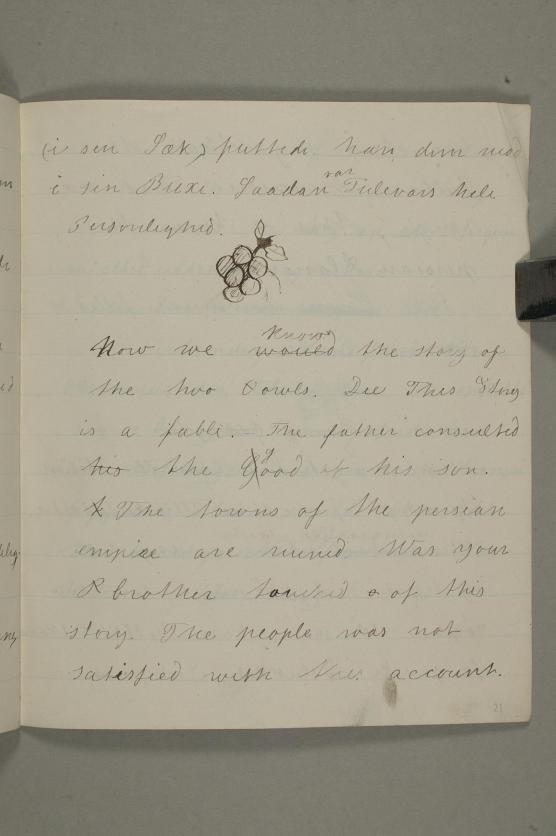 (i sen Sæk) puttede han dem ned
i sin Buxe. Saadan var Tulevars hele
Personlighed.
Now we know the story of
the two owls. This story
is a fable. The father consulted
his the good of his son.
The towns of the persian
empire are ruined. Was your
brother touched of this
story. The people was not
satisfied with this account.
21